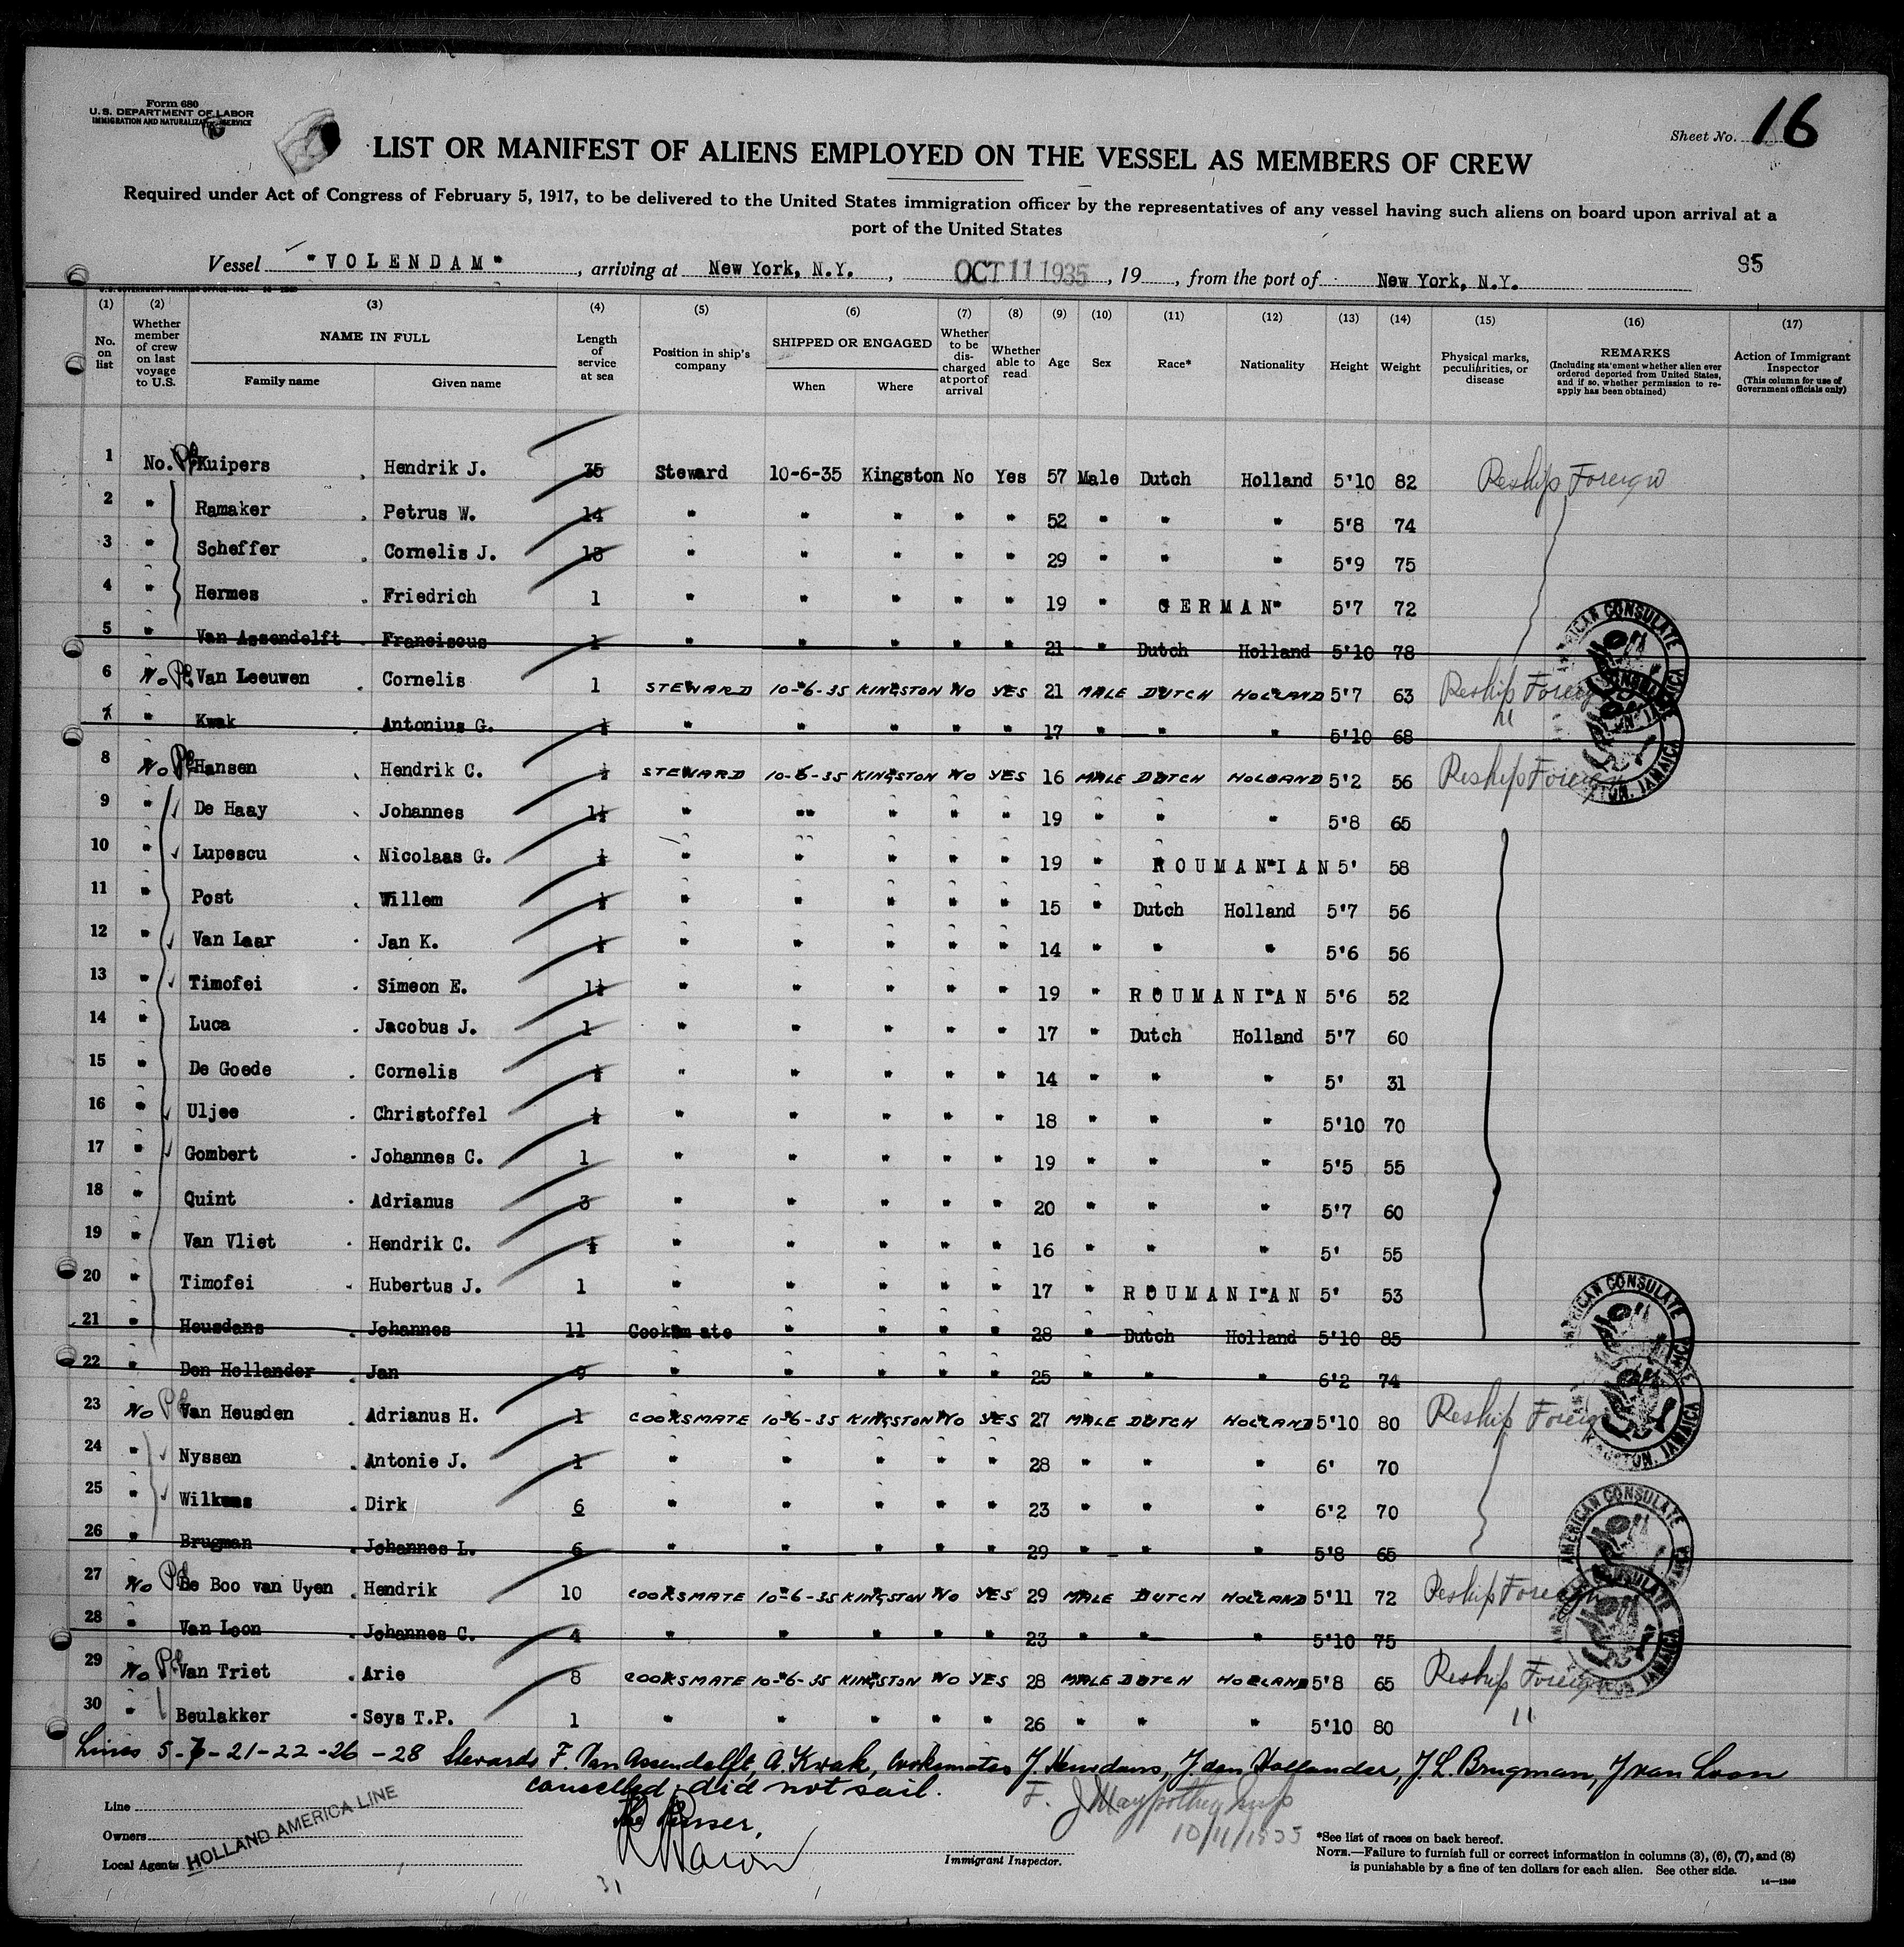 Form 680
U.S. DEPARTMENT OF LABOR
IMMIGRATION AND NATURALIZATION SERVICE
Sheet No. 16
LIST OR MANIFEST OF ALIENS EMPLOYED ON THE VESSEL AS MEMBERS OF CREW
Required under Act of Congress of February 5, 1917, to be delivered to the United States immigration officer by the representatives of any vessel having such aliens on board upon arrival at a
port of the United States
95
Vessel "VOLENDAM", arriving at New York, N.Y., OCT 11 1935, 19, from the port of New York, N.Y.
(1) (2) (3) (4) (5) (6) (7) (8) (9) (10) (11) (12) (13) (14) (15) (16) (17)
No. on list
Whether member of crew on last voyage to U.S.
NAME IN FULL
Family name Given name
Length of service at sea
Position in ship's company
SHIPPED OR ENGAGED
When Where
Whether to be discharged at port of arrival
Whether able to read
Age
Sex
Race*
Nationality
Height
Weight
Physical marks, peculiarities, or disease
REMARKS
(Including statement whether alien ever ordered deported from United States, and if so, whether permission to reapply has been obtained)
Action of Immigrant Inspector
(This column for use of Government officials only)
1 No. Kuipers, Hendrik J. 35 Steward 10-6-35 Kingston No Yes 57 Male Dutch Holland 5'10 82 Reship Foreign
2 " Ramaker, Petrus W. 14 " " " " " 52 " " " 5'8 74
3 " Scheffer, Cornelis J. 13 " " " " " 29 " " " 5'9 75
4 " Hermes, Friedrich 1 " " " " " 19 " GERMAN" 5'7 72
5 " Van Assendelft. Franciscus 1 " " " " " 21 " Dutch Holland 5'10 78
6 No Van Leeuwen. Cornelis 1 STEWARD 10-6-35 KINGSTON NO YES 21 MALE DUTCH HOLLAND 5'7 63 Reship Foreign
7 " Kwak. Antonius G. " " " " " 17 " " " 5'10 68
8 No Hansen, Hendrik C. STEWARD 10-6-35 KINGSTON NO YES 16 MALE DUTCH HOLLAND 5'2 56 Reship Foreign
9 " De Haay, Johannes 1½ " "" " " " 19 " " " 5'8 65
10 " Lupescu, Nicolaas G. " " " " " 19 " ROUMANIAN 5' 58
11 " Post, Willem " " " " " 15 " Dutch Holland 5'7 56
12 " Van Laar. Jan K. " " " " " 14 " " " 5'6 56
13 " Timofei. Simeon E. 1½ " " " " " 19 " ROUMANIAN 5'6 52
14 " Luca. Jacobus J. 1 " " " " " 17 " Dutch Holland 5'7 60
15 " De Goede. Cornelis " " " " " 14 " " " 5' 31
16 " Uljee. Christoffel " " " " " 18 " " " 5'10 70
17 " Gombert. Johannes C. 1 " " " " " 19 " " " 5'5 55
18 " Quint. Adrianus 3 " " " " " 20 " " " 5'7 60
19 " Van Vliet. Hendrik C. " " " " " 16 " " " 5' 55
20 " Timofei. Hubertus J. 1 " " " " " 17 " ROUMANIAN 5' 53
21 " Heusdens. Johannes 11 Cooksmate " " " " 28 " Dutch Holland 5'10 85
22 " Den Hollander. Jan 9 " " " " " 25 " " " 6'2 74
23 No Van Heusden. Adrianus H. 1 COOKSMATE 10-6-35 KINGSTON NO YES 27 MALE DUTCH HOLLAND 5'10 80 Reship Foreign
24 " Nyssen. Antonie J. 1 " " " " " 28 " " " 6' 70
25 " Wilkens. Dirk 6 " " " " " 23 " " " 6'2 70
26 " Brugman. Johannes L. 6 " " " " " 29 " " " 5'8 65
27 No De Boo van Uyen. Hendrik 10 COOKSMATE 10-6-35 KINGSTON NO YES 29 MALE DUTCH HOLLAND 5'11 72 Reship Foreign
28 " Van Loon. Johannes C. 4 " " " " " 23 " " " 5'10 75
29 No Van Triet. Arie 8 COOKSMATE 10-6-35 KINGSTON NO YES 28 MALE DUTCH HOLLAND 5'8 65 Reship Foreign
30 " Beulakker. Seys T.P. 1 " " " " " 26 " " " 5'10 80 "
AMERICAN CONSULATE
KINGSTON, JAMAICA
Lines 5-7-21-22-26-28 Stewards F. Van Assendelft, A. Kwak, Cooksmates J. Heusdens, J. den Hollander, J. L. Brugman, J van Loon
cancelled, did not sail.
The Purser,
10/11/1935
Line
Owners
Local Agents HOLLAND AMERICA LINE
Immigrant Inspector.
*See list of races on back hereof.
NOTE.—Failure to furnish full or correct information in columns (3), (6), (7), and (8)
is punishable by a fine of ten dollars for each alien. See other side.
14—1240